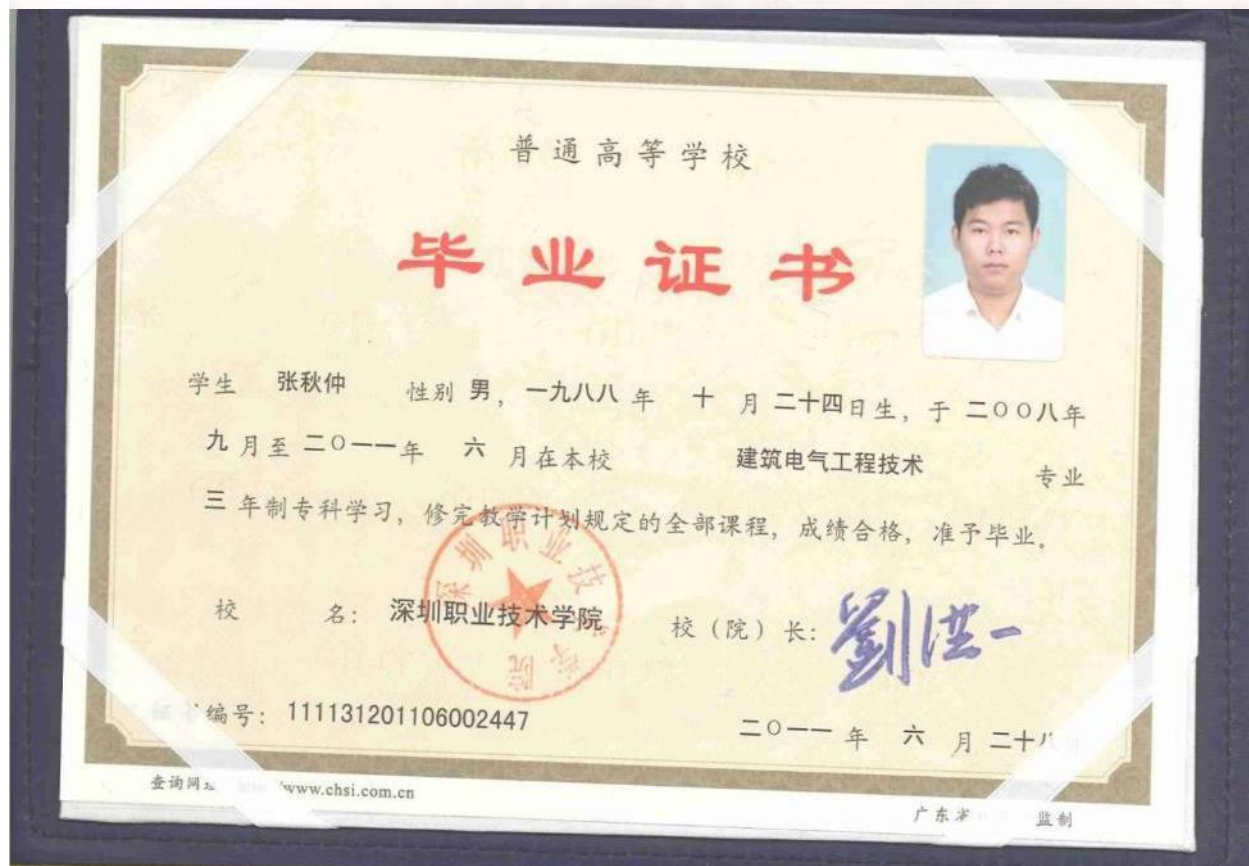 普通高等学校
毕业证书
学生 张秋仲 性别 男，一九八八 年 十 月 二十四日生，于 二〇〇八年
九 月至 二〇一一年 六 月在本校 建筑电气工程技术 专业
三 年制专科学习，修完教学计划规定的全部课程，成绩合格，准予毕业。
校 名：深圳职业技术学院 校（院）长：劉洪一
深圳职业技术学院
编号：111131201106002447 二〇一一 年 六 月 二十八
查询网 www.chsi.com.cn 广东省 监制